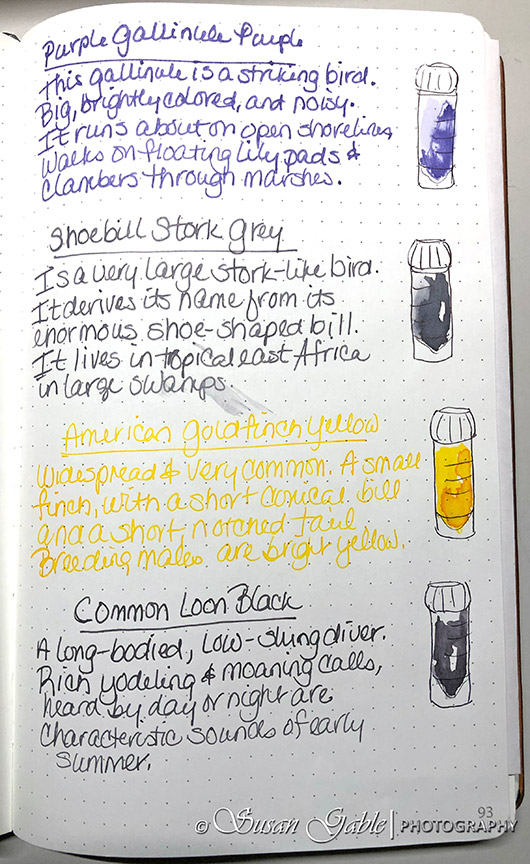 Purple Gallinule Purple
This gallinule is a striking bird.
Big, brightly colored, and noisy.
It runs about on open shorelines,
walks on floating lily pads &
clambers through marshes.
Shoebill Stork Grey
Is a very large stork-like bird.
It derives its name from its
enormous shoe-shaped bill.
It lives in tropical east Africa
in large swamps.
American Goldfinch Yellow
Widespread & very common. A small
finch, with a short conical bill
and a short, notched tail
Breeding males are bright yellow.
Common Loon Black
A long-bodied, low-slung diver.
Rich yodeling & moaning calls,
heard by day or night are
characteristic sounds of early
summer.
93
© Susan Gable | PHOTOGRAPHY